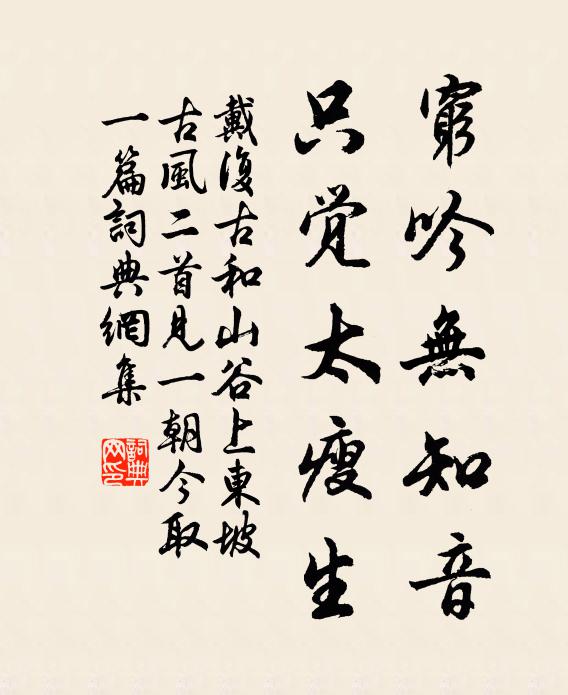 窮吟無知音
只覚太瘦生
戴復古和山谷上東坡
古風二首見一朝今取
一篇詞典網集
詞典網印